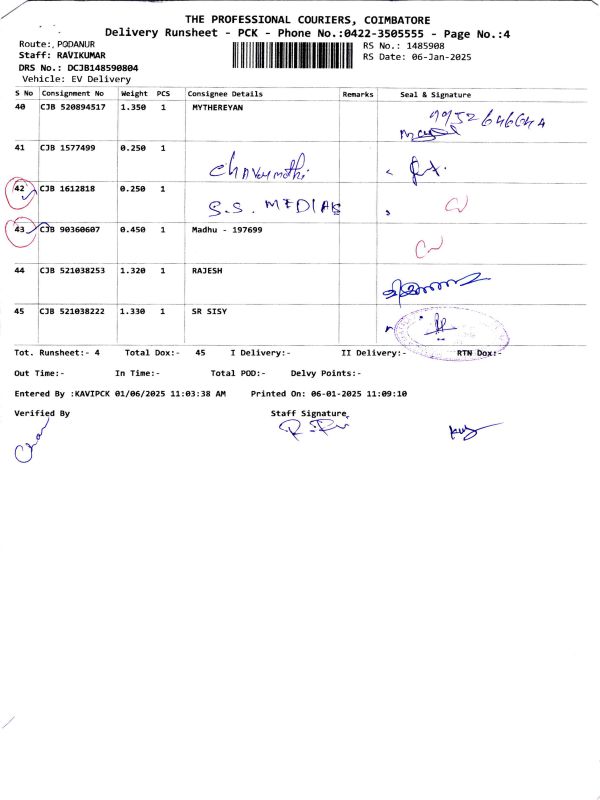 THE PROFESSIONAL COURIERS, COIMBATORE
Delivery Runsheet - PCK - Phone No.:0422-3505555 - Page No.:4
Route:, PODANUR
RS No.: 1485908
Staff: RAVIKUMAR
RS Date: 06-Jan-2025
DRS No.: DCJB148590804
Vehicle: EV Delivery
S No Consignment No Weight PCS Consignee Details Remarks Seal & Signature
40 CJB 520894517 1.350 1 MYTHEREYAN
41 CJB 1577499 0.250 1
42 CJB 1612818 0.250 1 S.S. MEDIAS
43 CJB 90360607 0.450 1 Madhu - 197699
44 CJB 521038253 1.320 1 RAJESH
45 CJB 521038222 1.330 1 SR SISY
Tot. Runsheet:- 4 Total Dox:- 45 I Delivery:- II Delivery:- RTN Dox:-
Out Time:- In Time:- Total POD:- Delvy Points:-
Entered By :KAVIPCK 01/06/2025 11:03:38 AM Printed On: 06-01-2025 11:09:10
Verified By Staff Signature